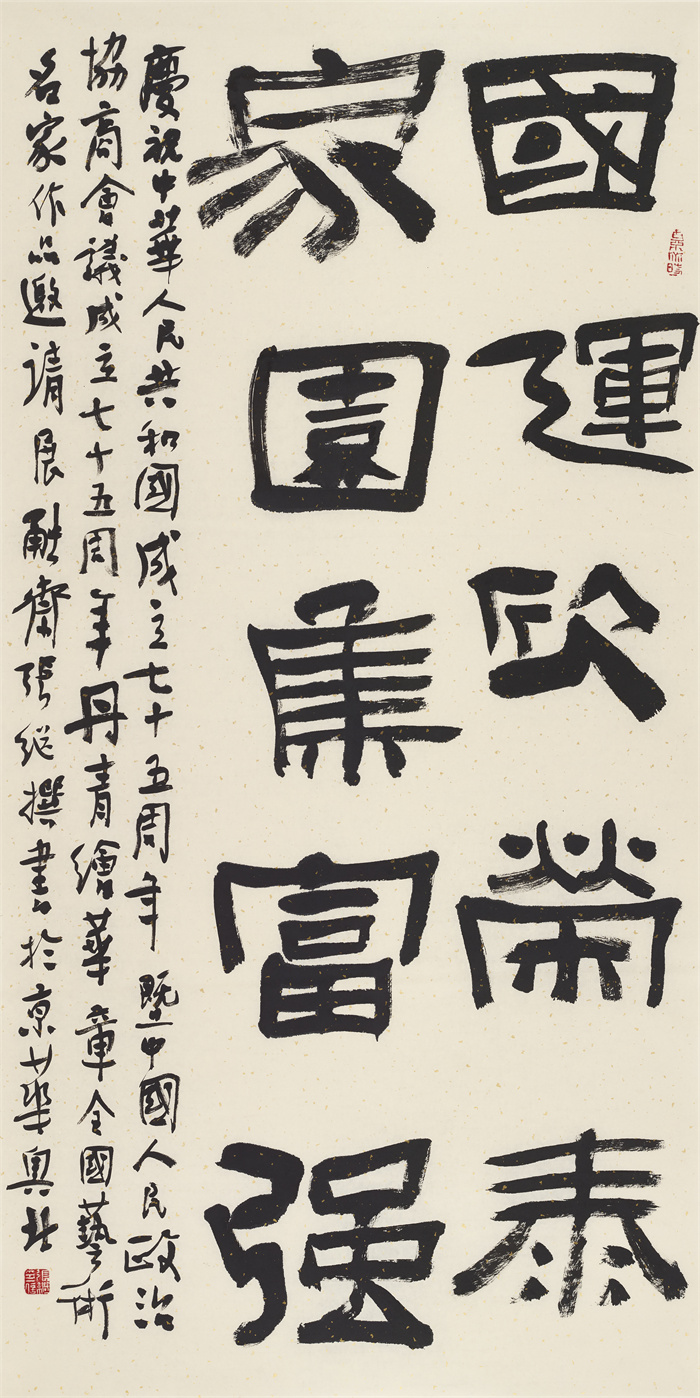 國運欣榮泰
家園集富强
慶祝中華人民共和國成立七十五周年暨中國人民政治
協商會議成立七十五周年丹青繪華章全國藝術
名家作品邀請展融齋張继撰書於京華奥北